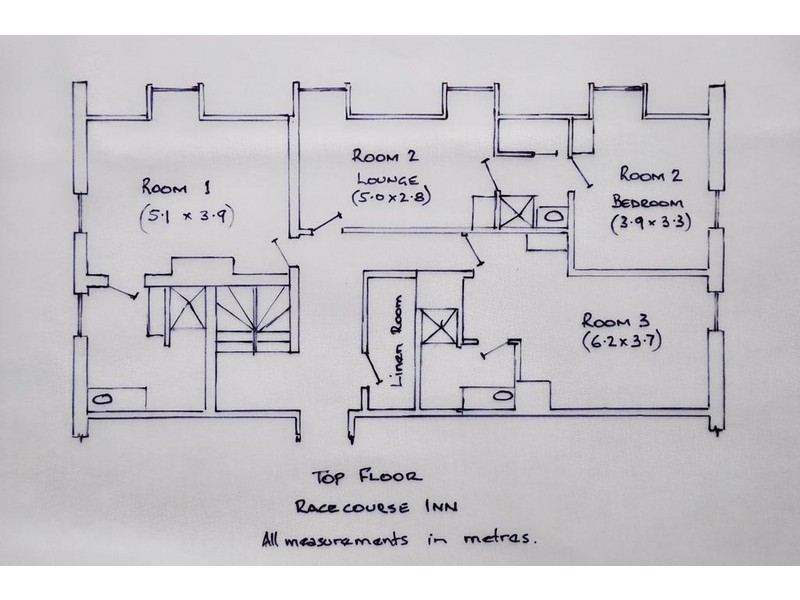 ROOM 1
(5.1 x 3.9)
ROOM 2
LOUNGE
(5.0 x 2.8)
ROOM 2
BEDROOM
(3.9 x 3.3)
ROOM 3
(6.2 x 3.7)
Linen Room
TOP FLOOR
RACECOURSE INN
All measurements in metres.